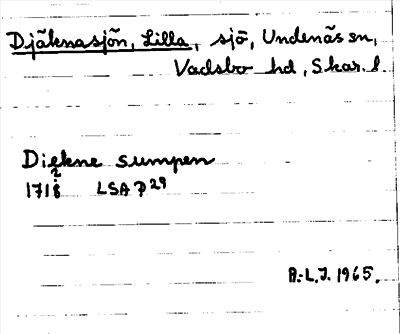 Djäknasjön, Lilla, sjö, Undenäs sn,
Vadsbo hd, Skar. l
Diekne sumpen
1718 LSA P29
B.-L.J. 1965.